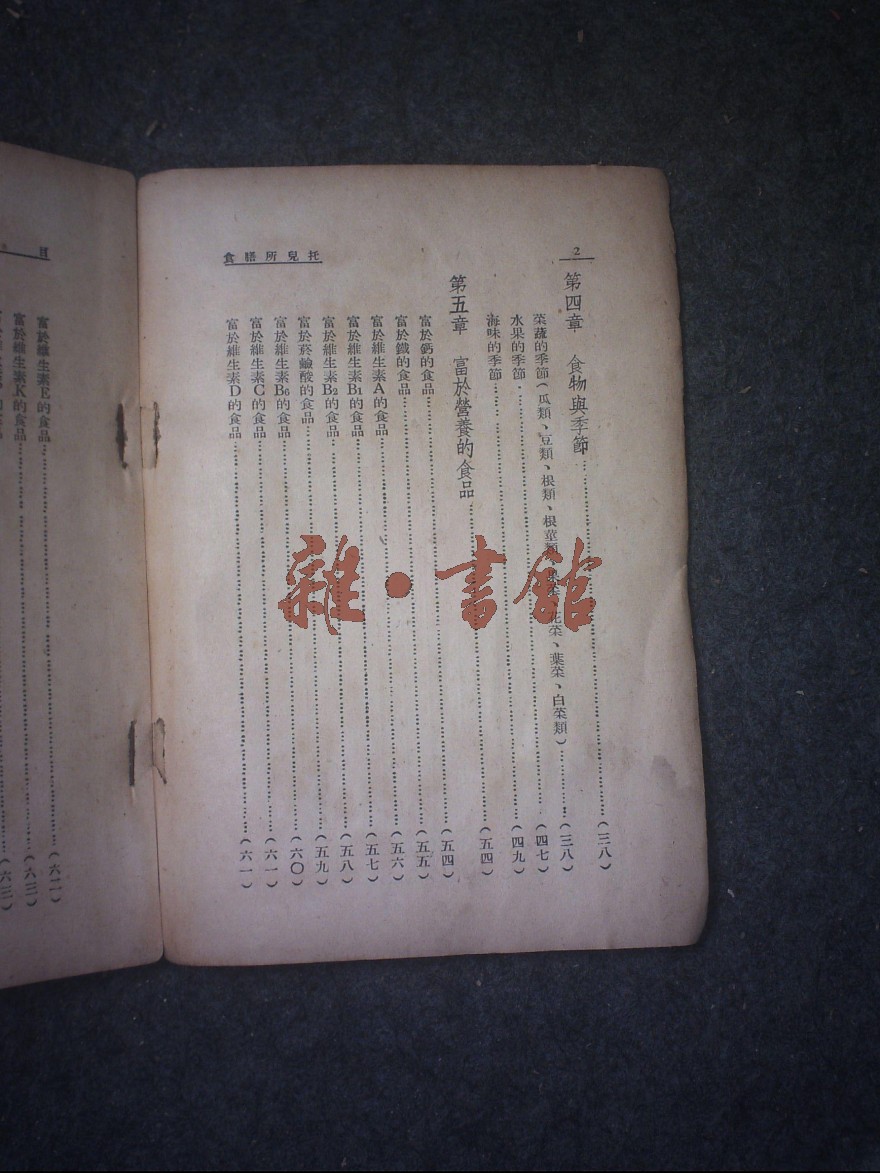 2
托兒所膳食
第四章 食物與季節……(三八)
菜蔬的季節(瓜類、豆類、根類、根莖類、果菜、花菜、葉菜、白菜類)……(三八)
水果的季節……(四七)
海味的季節……(四九)
第五章 富於營養的食品……(五四)
富於鈣的食品……(五四)
富於鐵的食品……(五五)
富於維生素A的食品……(五六)
富於維生素B1的食品……(五七)
富於維生素B2的食品……(五八)
富於菸鹼酸的食品……(五九)
富於維生素B6的食品……(六〇)
富於維生素C的食品……(六一)
富於維生素D的食品……(六一)
目
富於維生素E的食品……(六二)
富於維生素K的食品……(六三)
雜·書館